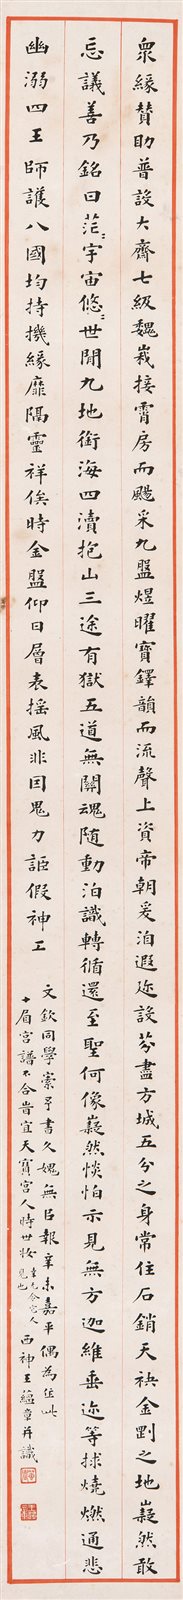 眾緣贊助普設大齋七級巍峩接霄房而颺采九盤煜曜寶鐸韻而流聲上資帝朝爰洎遐迩設芬盡方城五分之身常住石銷天袂金剛之地嶷然敢
忘議善乃銘曰茫〻宇宙悠〻世閒九地銜海四瀆抱山三途有獄五道無關魂隨動泊識轉循還至聖何像嶷然惔怕示見無方迦維垂迹等捄燒燃通悲
幽溺四王師護八國均持機緣靡隔靈祥俟時金盤仰日層表揺風非因鬼力詎假神工
文欽同學索予書久媿無㠯報辛未嘉平偶為臨此
十眉宮譜不合昔宜天寶宮人時世妝 西神王蘊章并識